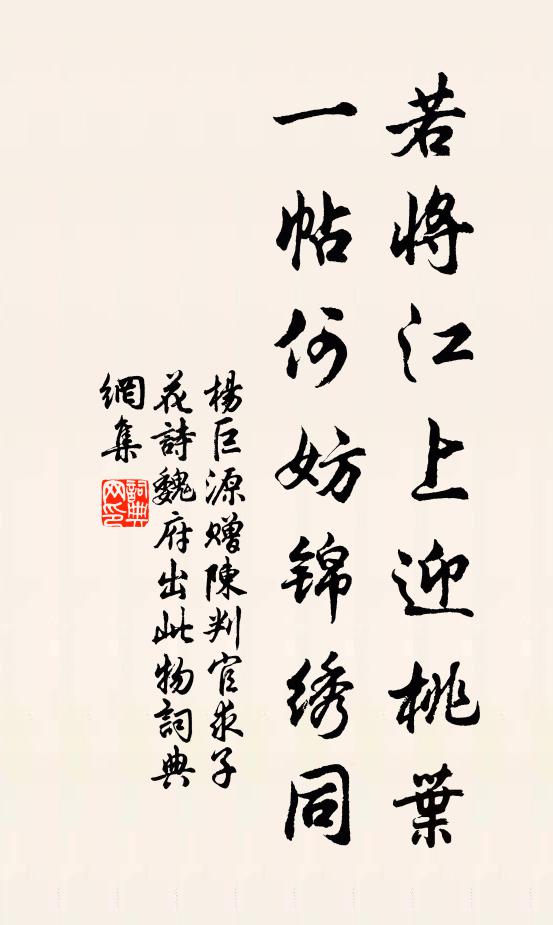 若將江上迎桃葉
一帖何妨锦绣同
楊巨源赠陳判官求子
花詩魏府出此物詞典
網集
詞典
网印